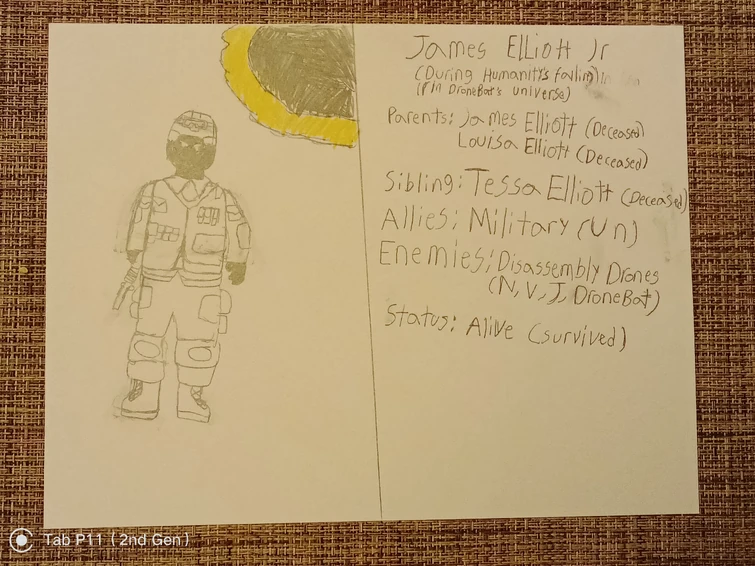 James Elliott Jr
(During Humanity's falling)
in DroneBat's universe)
Parents: James Elliott (Deceased)
Louisa Elliott (Deceased)
Sibling: Tessa Elliott (Deceased)
Allies: Military (Un)
Enemies: Disassembly Drones
(N, V, J, DroneBat)
Status: Alive (survived)
Tab P11 (2nd Gen)